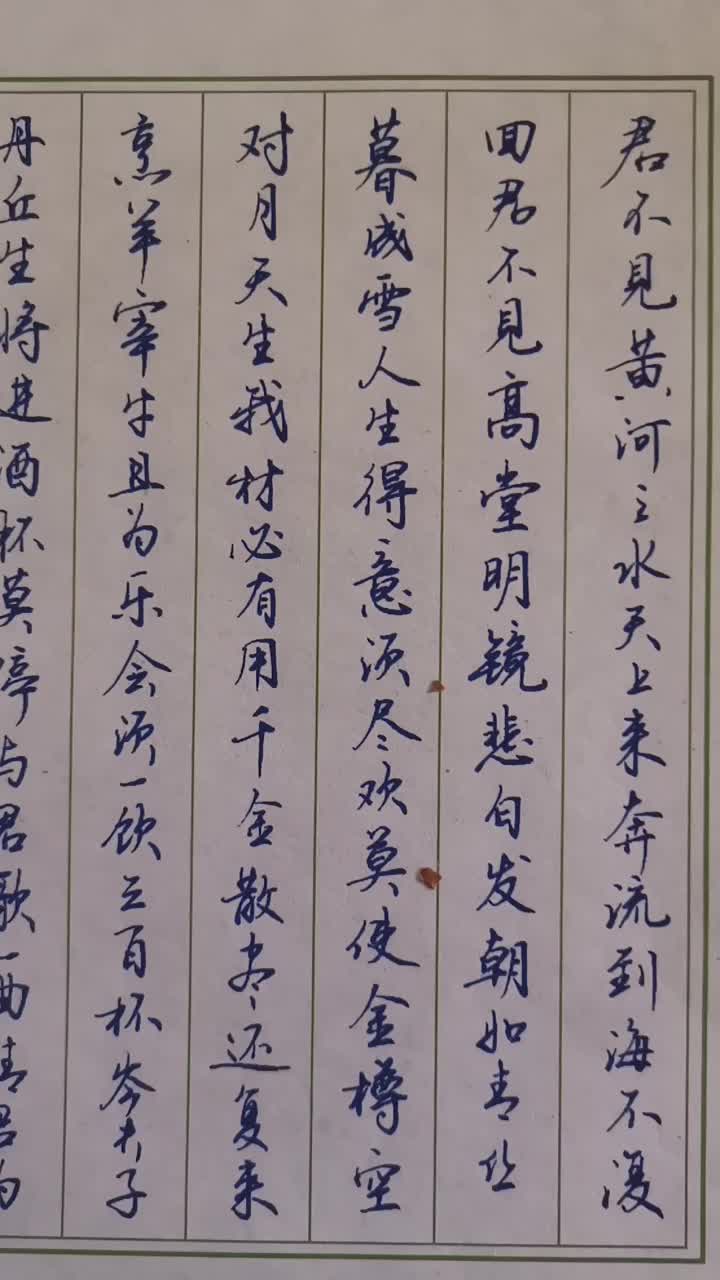 君不見黄河之水天上来奔流到海不復
回君不見高堂明镜悲白发朝如青丝
暮成雪人生得意须尽欢莫使金樽空
对月天生我材必有用千金散尽还复来
烹羊宰牛且为乐会须一饮三百杯岑夫子
丹丘生将进酒杯莫停与君歌一曲请君为